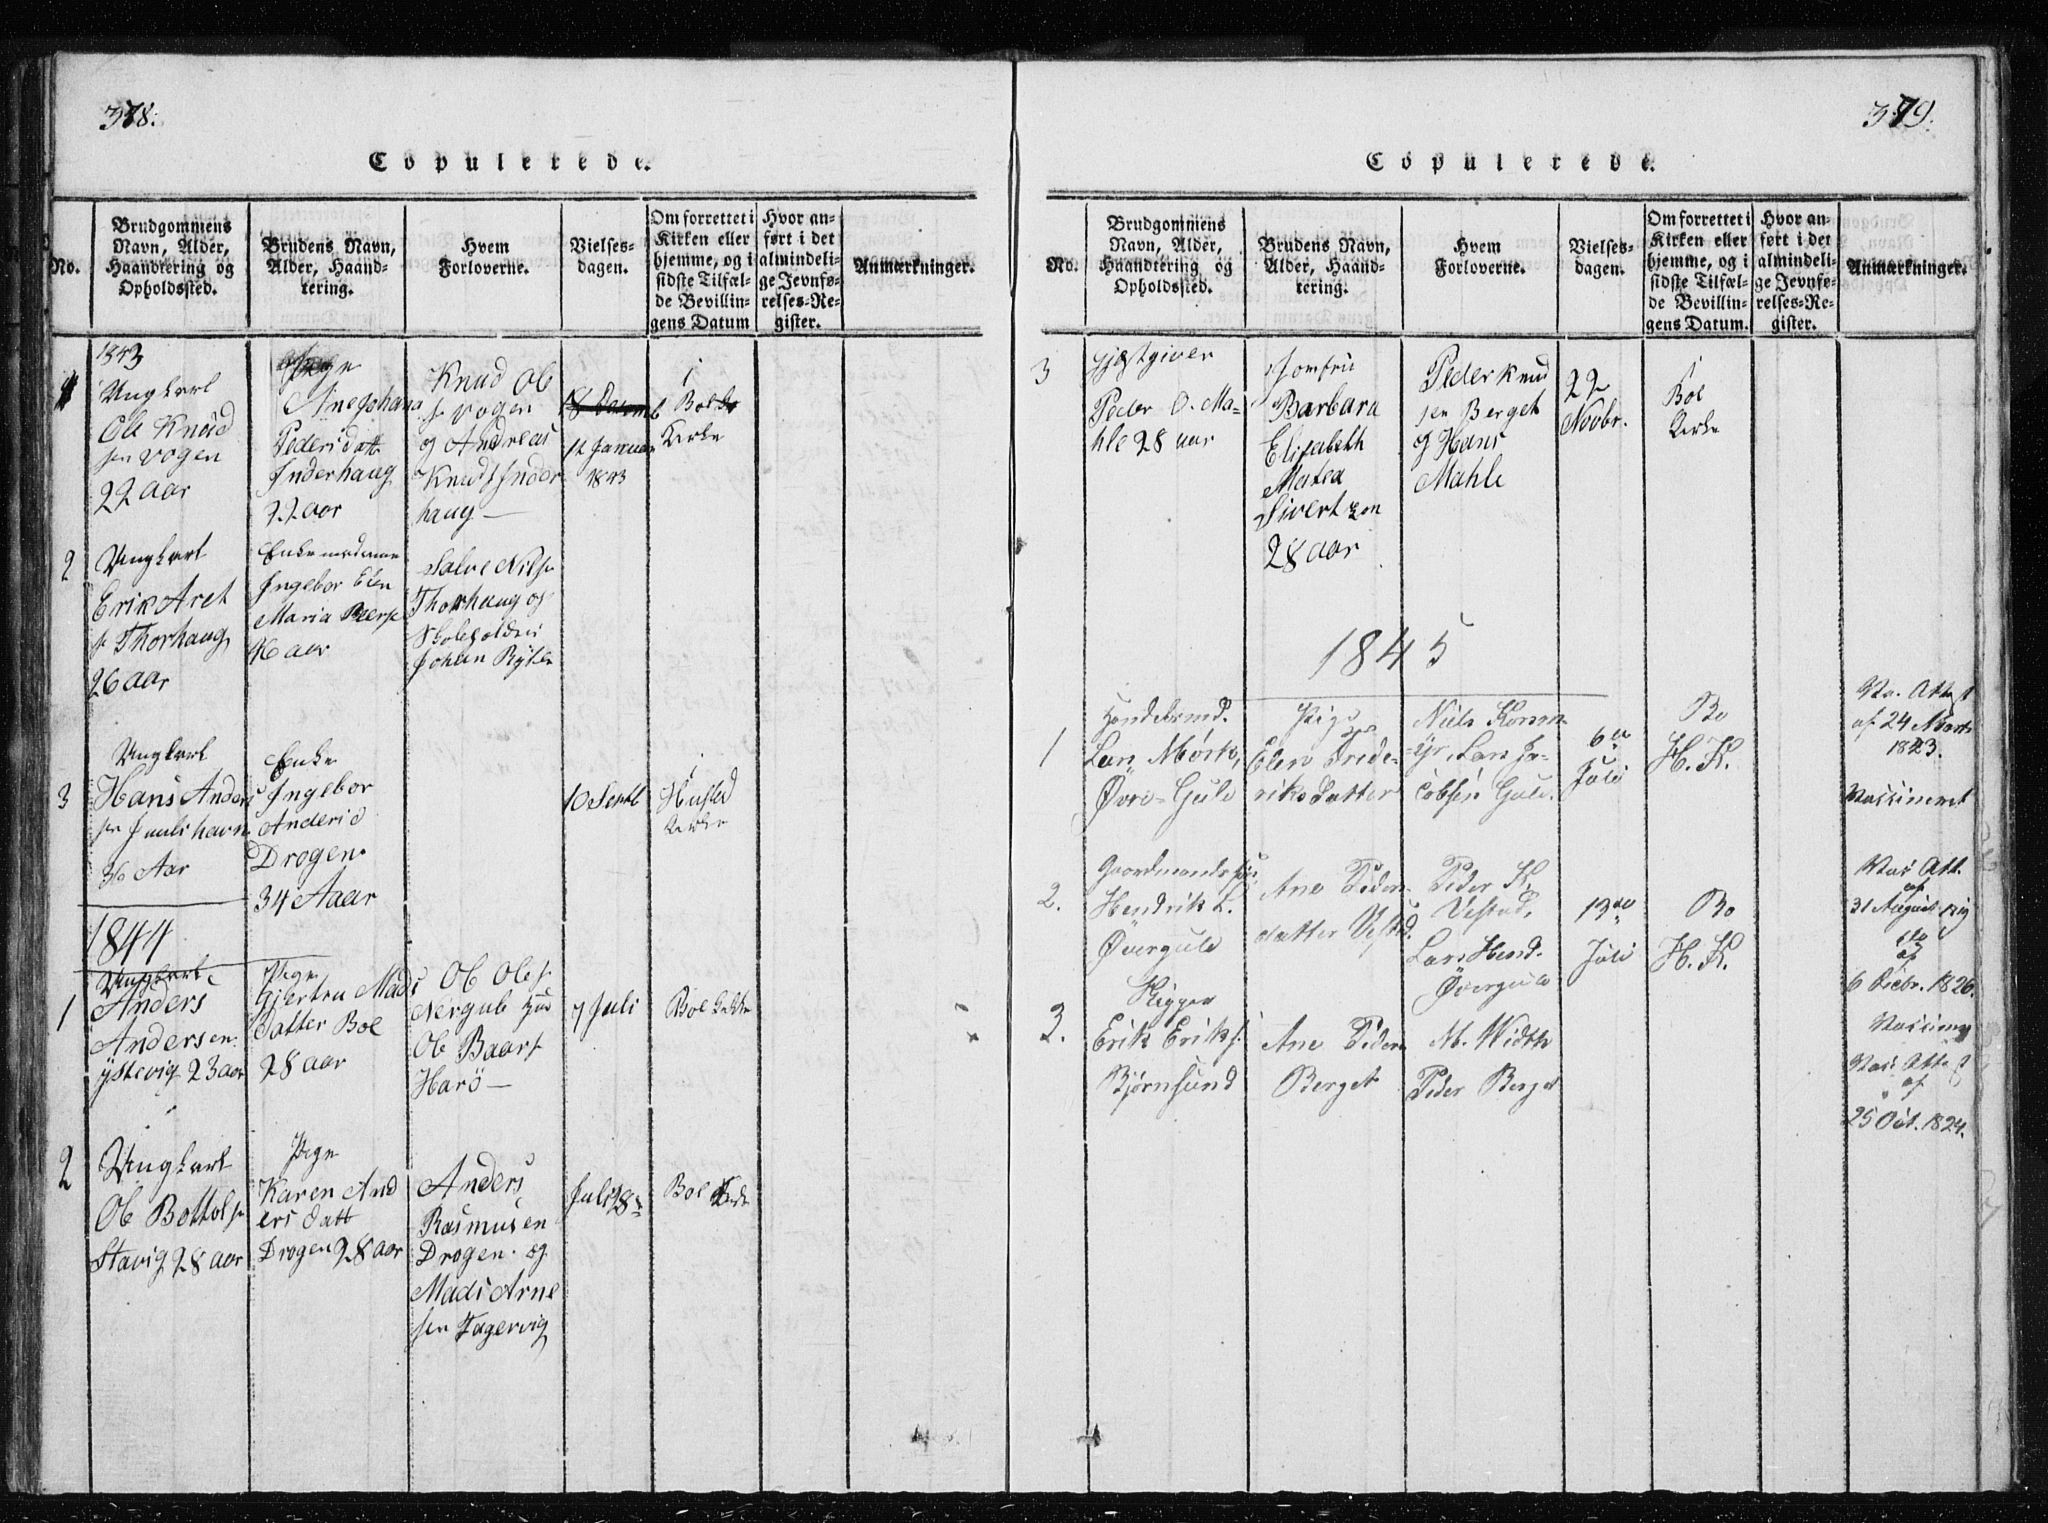 378.
Copulerede.
No.
Brudgommens
Navn, Alder,
Haandtering og
Opholdssted.
Brudens Navn,
Alder, Haand-
tering.
Hvem
Forloverne.
Vielses-
dagen.
Om forrettet i
Kirken eller
hjemme, og i
sidste Tilfæl-
de Bevillin-
gens Datum
Hvor an-
ført i det
almindeli-
ge Jevnfø-
relses-Re-
gister.
Anmærkninger.
1843
1
Ungkarl
Ole Knud
sen Vogen
22 aar
Pige
Ane Johana
Pedersdatt
Inderhaug
22 aar
Knud Ole
sr Vogen
og Andreas
Knuds Inder
haug
12 Januar
1843
i
Boe
Kirke
2
Ungkarl
Erik Aret
sr Thorhaug
26 aar
Enkemadame
Ingebor Elen
Maria
46 aar
Salve Nils
Thorhaug og
Skoleholder
Johan
3
Ungkarl
Hans Anders
sen
36 Aar
Enke
Ingebor
Anders d
Drogen
34 Aaar
10 Septb
i
Husted
Kirke
1844
1
Ungkarl
Anders
Andersen
Ystevig 23 aar
Pige
Gjertru Mads
datter Boe
28 aar
Ole Oles
Nergule
Ole Baars
Harö
7 Juli
Boe Kirke
2
Ungkarl
Ole Bottols
Stavig 28 aar
Pige
Karen And
ers datt
Drogen 28 aar
Anders
Rasmusen
Drogen og
Mads Arne
sen Fagervig
Juli 28
Boe Kirke
379.
Copulerede.
No.
Brudgommens
Navn, Alder,
Haandtering og
Opholdssted.
Brudens Navn,
Alder, Haand-
tering.
Hvem
Forloverne.
Vielses-
dagen.
Om forrettet i
Kirken eller
hjemme, og i
sidste Tilfæl-
de Bevillin-
gens Datum.
Hvor an-
ført i det
almindeli-
ge Jevnfø-
relses-Re-
gister.
Anmærkninger.
3
Gjestgiver
Peder O. Ma-
hle 28 aar
Jomfru
Barbara
Elisabeth
Matea
Sivertzon
28 aar
Peder Knud
sen Berget
og Hans
Mahle
22
Novbr.
i
Boe
Kirke
1845
1
Handelsmd.
Lars Mörk,
Övre-Gule
Pige
Elen Fride-
riksdatter
Niels
Lars Ja-
cobsen Gule.
6te
Juli
Bo
H. K.
Va. Attest
af 24 Marts
1823.
Vaccineret
2.
Gaardmands søn
Hendrik L.
Övergule
Ane Peders-
datter Vestad.
Peder K.
Vestad,
Lars Hend.
Övergule
13de
Juli
Bo
H. K.
Vac. Att.
af
31 August 1819
do
af
6 Decbr. 1826.
3.
Erik Eriks.
Bjørnsund
Ane Peders
Berget
M. Width
Peder Berget
Vac. Attest
af
25 Oct. 1824.